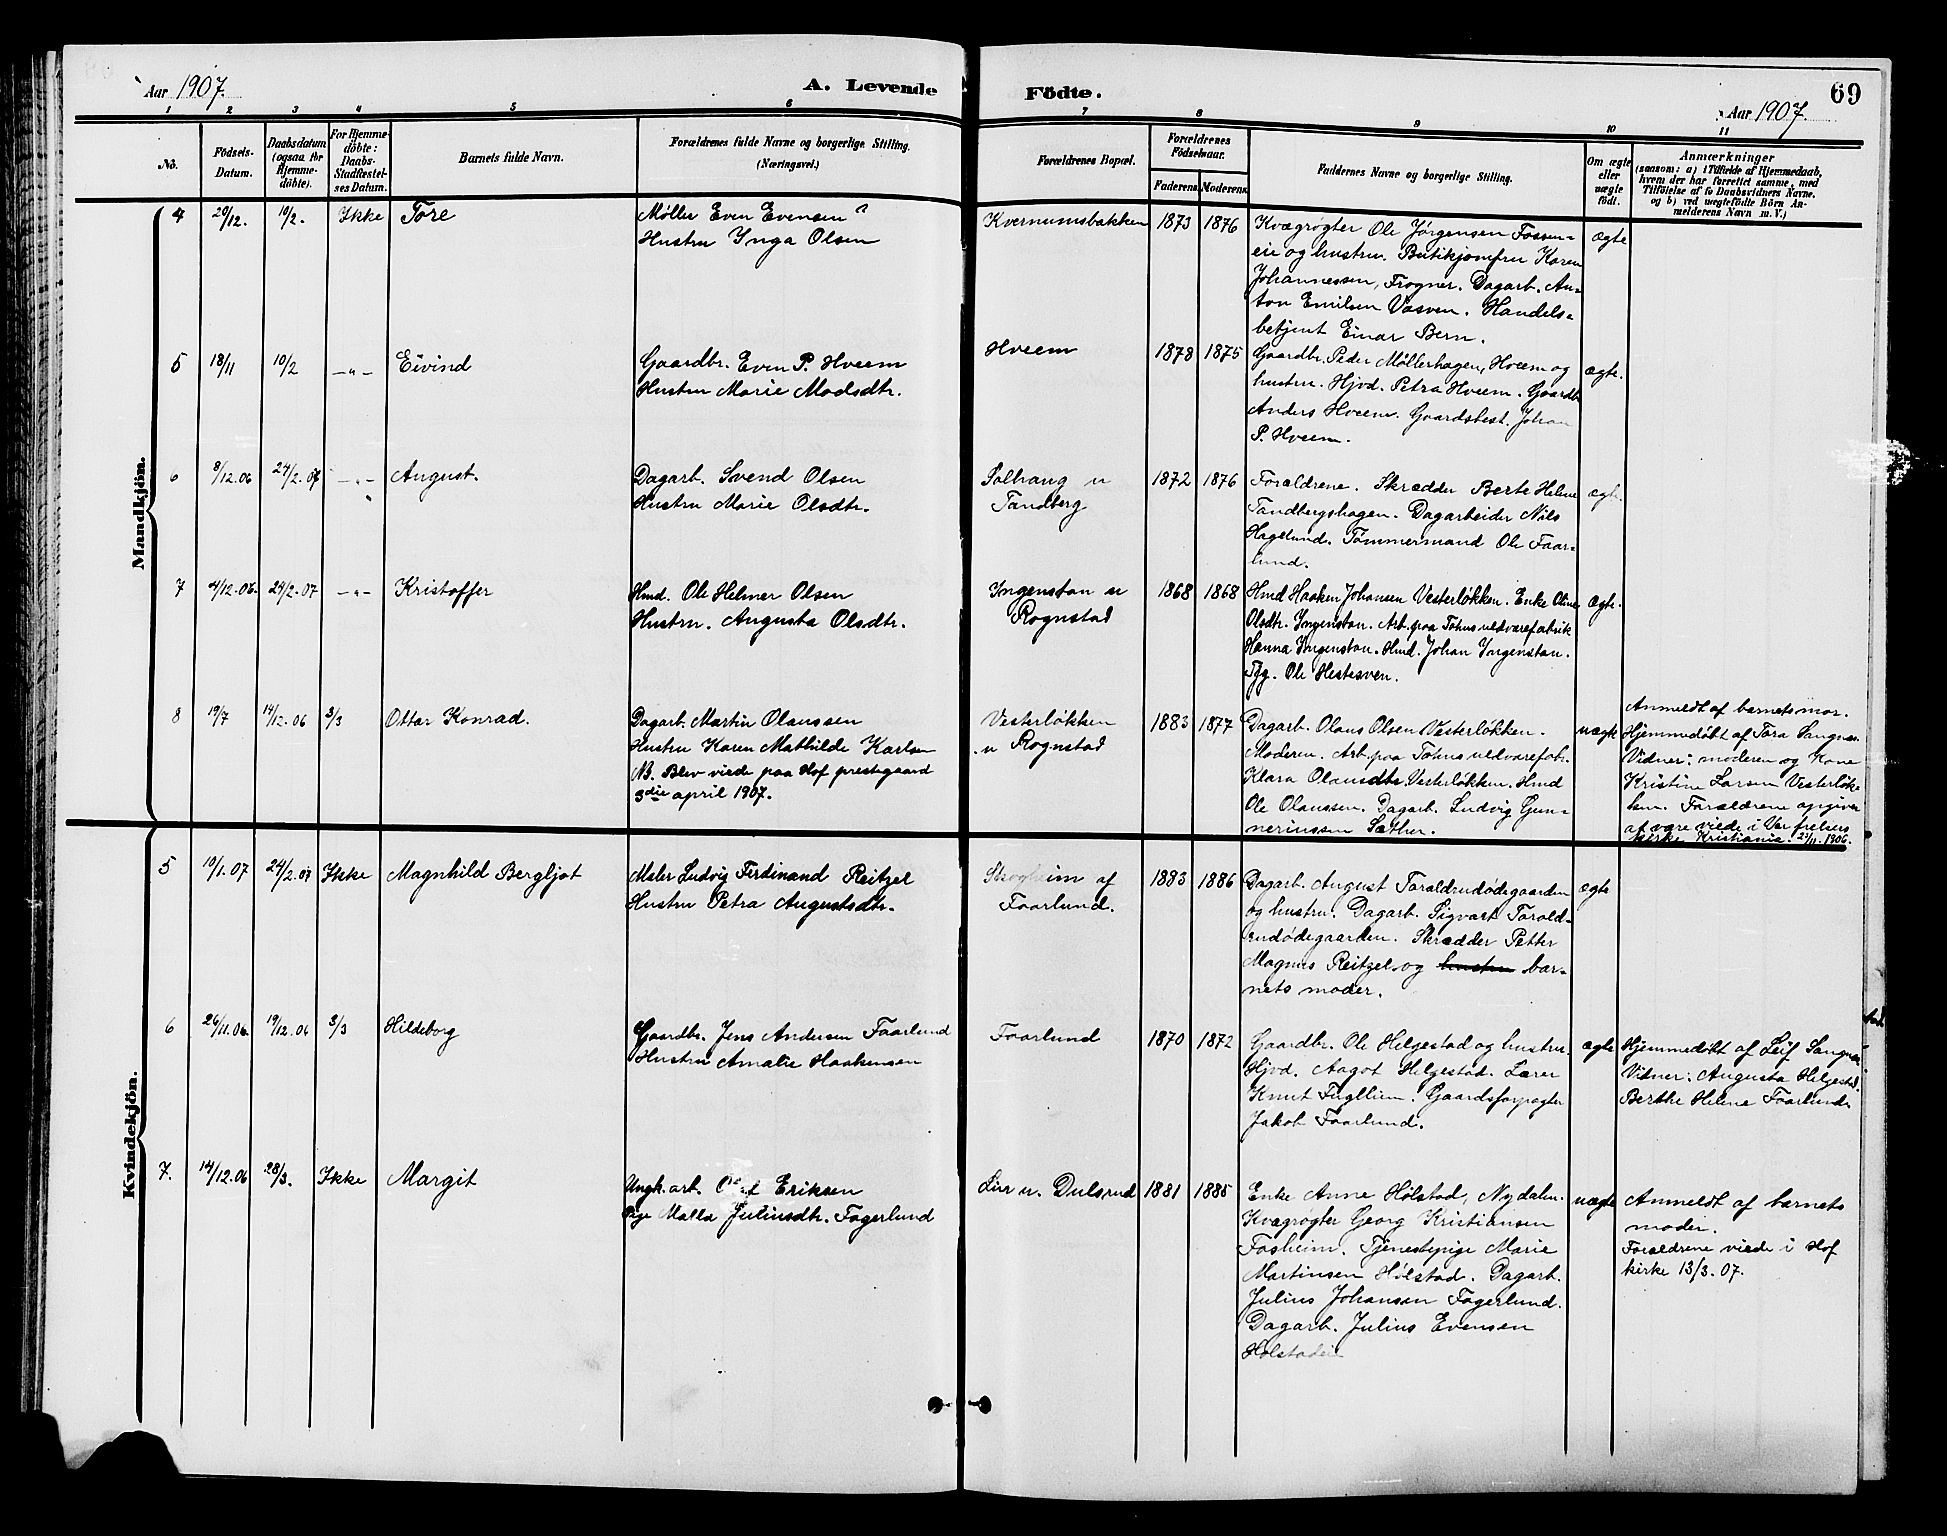 Aar 1907.
A. Levende Födte.
69
Aar 1907.
1 2 3 4 5 6 7 8 9 10 11
No.
Födsels-
Datum.
Daabsdatum
(ogsaa for
Hjemme-
döbte).
For Hjemme-
döbte:
Daabs-
Stadfæstel-
ses Datum.
Barnets fulde Navn.
Forældrenes fulde Navne og borgerlige Stilling.
(Næringsvei.)
Forældrenes Bopæl.
Forældrenes
Födselsaar.
Faderens. Moderens.
Faddernes Navne og borgerlige Stilling.
Om ægte
eller
uægte
født.
Anmærkninger
(saasom: a) i Tilfælde af Hjemmedaab,
hvem der har forrettet samme, med
Tilföielse af to Daabsvidners Navne,
og b) ved uægtefödte Börn An-
melderens Navn m. V.)
Mandkjön.
4 20/12. 10/2. Ikke Tore
Møller Even Evensen ?
Hustru Ynga Olsen
Kvernumsbakken 1873 1876
Kvægrøgter Ole Jørgensen Fossen-
eie og hustru. Butikjomfru Karen
Johannessen, Frogner. Dagarb. An-
ton Emilsen Vasven. Handels-
betjent Einar Bern.
ægte
5 18/11 10/2 -"- Eivind
Gaardbr. Even P. Hveem
Hustru Marie Madsdtr.
Hveem 1878 1875
Gaardbr. Peder Møllerhagen, Hveem og
hustru. Hjvd. Petra Hveem. Gaardbr.
Anders Hveem. Gaardsbest. Johan
P. Hveem.
ægte.
6 8/12.06 24/2.07 -"- August.
Dagarb. Svend Olsen
Hustru Marie Olsdtr.
Solhaug u
Tandberg
1872 1876
Forældrene. Skrædder Berte Helene
Tandbergshagen. Dagarbeider Nils
Hagelund. Tømmermand Ole Faar-
lund.
ægte.
7 4/12.06. 24/2.07 -"- Kristoffer
Hmd. Ole Helmer Olsen
Hustru. Augusta Olsdtr.
Yngenstun u
Rognstad
1868 1868
Hmd Haaken Johansen Vesterløkken. Enke Oline
Olsdtr. Yngenstun. Arb. paa Totens uldvarefabrik
Hanna Yngenstun. Hmd. Johan Yngenstun.
Tjg. Ole Hestesven.
ægte.
8 19/7 14/12.06 3/3 Ottar Konrad.
Dagarb. Martin Olaussen
Hustru Karen Mathilde Karlsen
NB. Blev viede paa Hof prestegaard
3die april 1907.
Vesterløkken
u Rognstad
1883 1877
Dagarb. Olaus Olsen Vesterløkken.
Moderen. Arb. paa Totens uldvarefab.
Klara Olausdtr Vesterløkken. Hmd
Ole Olaussen. Dagarb. Ludvig Gun-
nerinssen Sæther.
uægte
Anmeldt af barnets mor.
Hjemmedøbt af Tora Sangnæs.
Vidner: moderen og Kone
Kristine Larsen Vesterløk-
ken. Forældrene opgiver
at være viede i Vor frelsers
kirke Kristiania. 23/11. 1906.
Kvindekjön.
5 10/1.07 24/2.07 Ikke Magnhild Bergljot
Maler Ludvig Ferdinand Reitzel
Hustru Petra Augustsdtr.
Skogheim af
Faarlund.
1883 1886
Dagarb. August Taraldrudødegaarden
og hustru. Dagarb. Sigvart Tarald-
rudødegaarden. Skrædder Petter
Magnus Reitzel og hustru bar-
nets moder.
ægte
6 26/11.06 19/12.06 3/3 Hildeborg
Gaardbr. Jens Andersen Faarlund
Hustru Amalie Haakensen
Faarlund 1870 1872
Gaardbr. Ole Helgestad og hustru.
Hjvd. Aagot Helgestad. Lærer
Knut Fugllium. Gaardsforpagter
Jakob Faarlund.
ægte
Hjemmedøbt af Leif Sangnæs
Vidner: Augusta Helgestad.
Berthe Helene Faarlund.
7. 14/12.06 28/3. Ikke Margit
Ungk. arb. Olaf Eriksen
Pige Malla Juliusdtr. Fagerlund
Lier u. Dulsrud 1881 1885
Enke Anne Hølstad, Nydalen.
Kvægrøgter Georg Kristiansen
Fosheim. Tjenestepige Marie
Martinsen Hølstad. Dagarb.
Julius Johansen Fagerlund.
Dagarb. Julius Evensen
Hølstadeie
uægte
Anmeldt af barnets
moder.
Forældrene viede i Hof
kirke 13/3.07.